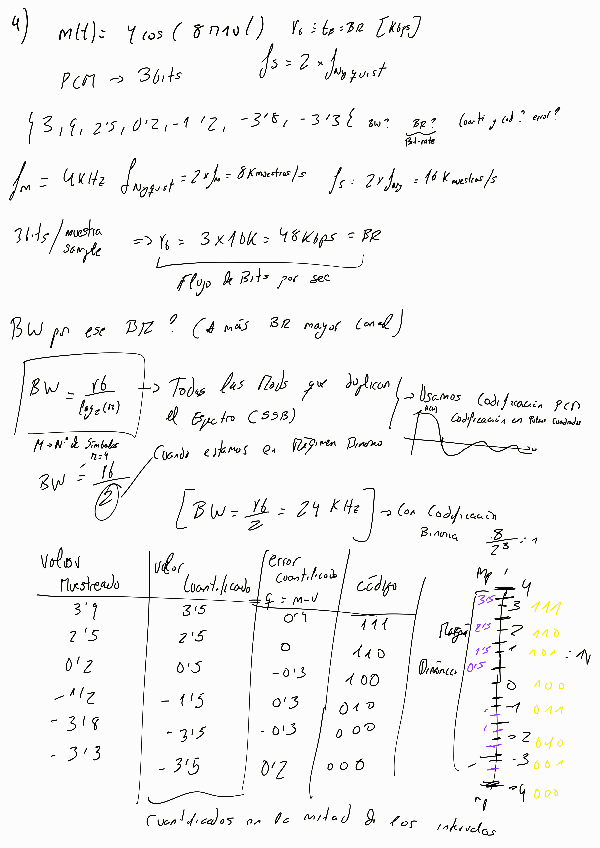 4) m(t) = 4 cos ( 8π10 t ) r_b ≡ t_B = BR [Kbps]
PCM → 3 bits f_s = 2 × f_Nyquist
{ 3,9, 2'5, 0'2, -1'2, -3'8, -3'3 } BW? BR? Cuanti y cod? error?
Bit-rate
f_m = 4 KHz f_Nyquist = 2 × f_m = 8 K muestras/s f_s = 2 × f_Ny = 16 K muestras/s
3 bits / muestra sample ⇒ r_b = 3 × 16K = 48 Kbps = BR
Flujo de Bits por sec
BW por ese BR? (A más BR mayor Canal)
BW = r_b / log_2(M) → Todas las Mods que duplican
el Espectro (SSB)
→ Usamos Codificación PCM
Codificación en Pulsos Cuadrados
M → Nº de Símbolos
M = 4
Cuando estamos en Régimen Binario
BW = r_b / 2
[ BW = r_b / 2 = 24 KHz ] → Con Codificación
Binaria 8 / 2^3 = 1
Valor Muestreado | Valor Cuantificado | error Cuantificado | código
q = m - v
3'9 3'5 0'4 111
2'5 2'5 0 110
0'2 0'5 -0'3 100
-1'2 -1'5 0'3 010
-3'8 -3'5 -0'3 000
-3'3 -3'5 0'2 000
Cuantificados en la mitad de los intervalos
Mp
4
3'5 3 111
Margen 2'5 2 110
1'5 1 101 = 1V
Dinámico 0'5
0 100
-1 011
-2 010
-3 001
-4 000